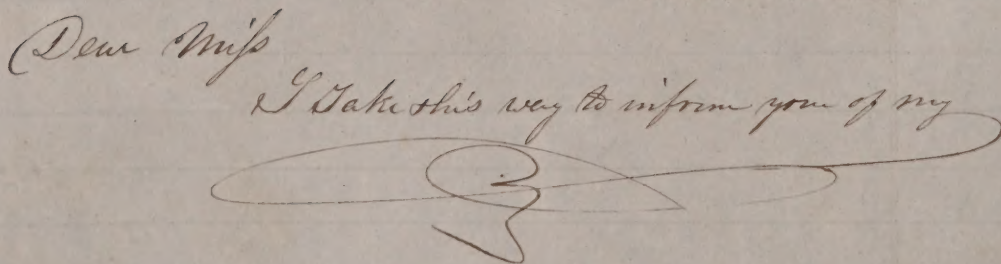 Dear Miss
I Take this way to inform you of my